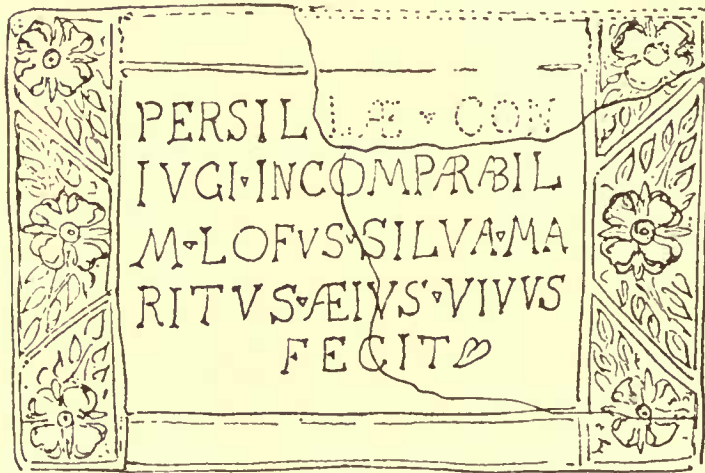 PERSILLÆ ▾ CON
IVGI▾INCOMPARABIL
M▾LOFVS▾SILVA▾MA
RITVS▾ÆIVS▾VIVVS
FECIT